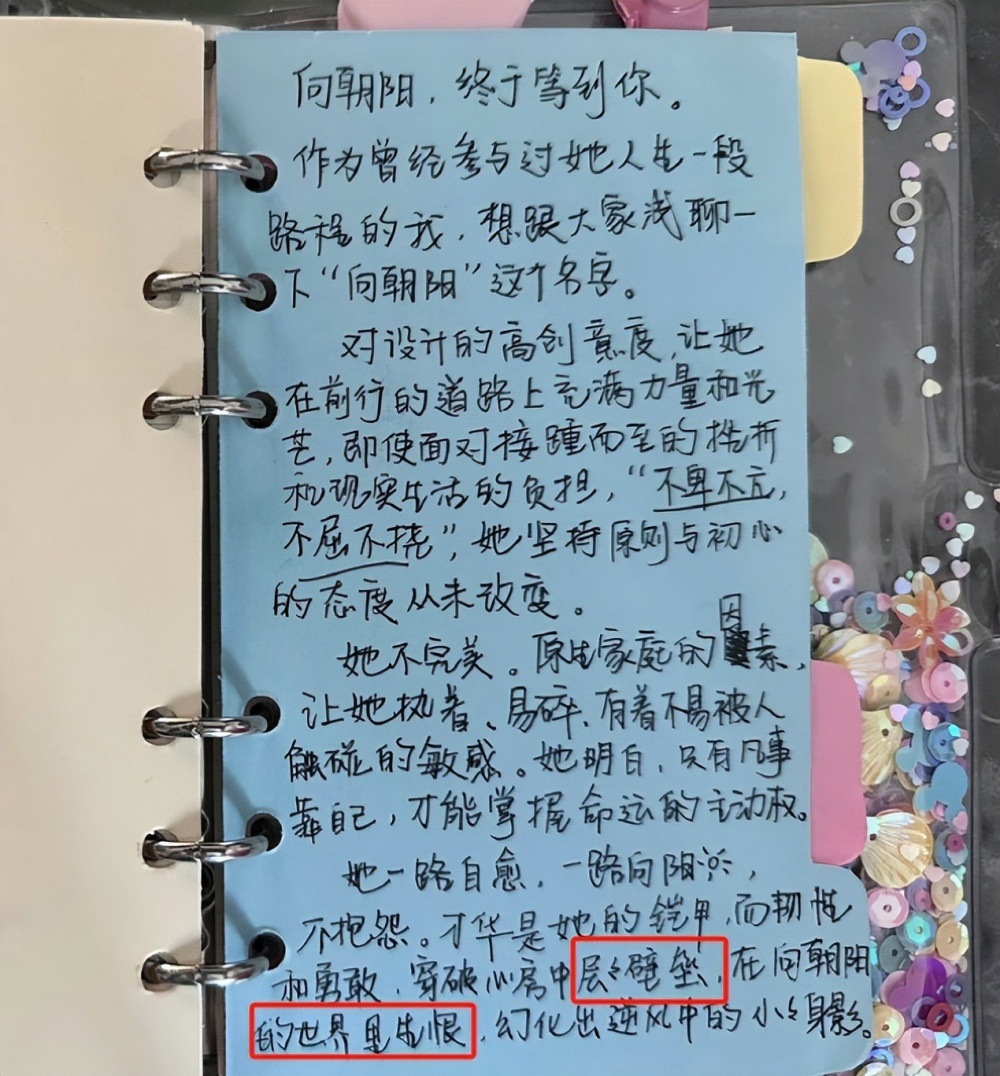 向朝阳，终于等到你。
作为曾经参与过她人生一段
路程的我，想跟大家浅聊一
下“向朝阳”这个名字。
对设计的高创意度，让她
在前行的道路上充满力量和光
芒，即使面对接踵而至的挫折
和现实生活的负担，“不卑不亢，
不屈不挠”，她坚持原则与初心
的态度从未改变。
她不完美。原生家庭的因素，
让她执着、易碎、有着不易被人
触碰的敏感。她明白，只有凡事
靠自己，才能掌握命运的主动权。
她一路自愈，一路向阳，
不抱怨。才华是她的铠甲，而韧性
和勇敢，穿破心房中层々壁垒，在向朝阳
的世界里生根，幻化出逆风中的小々身影。